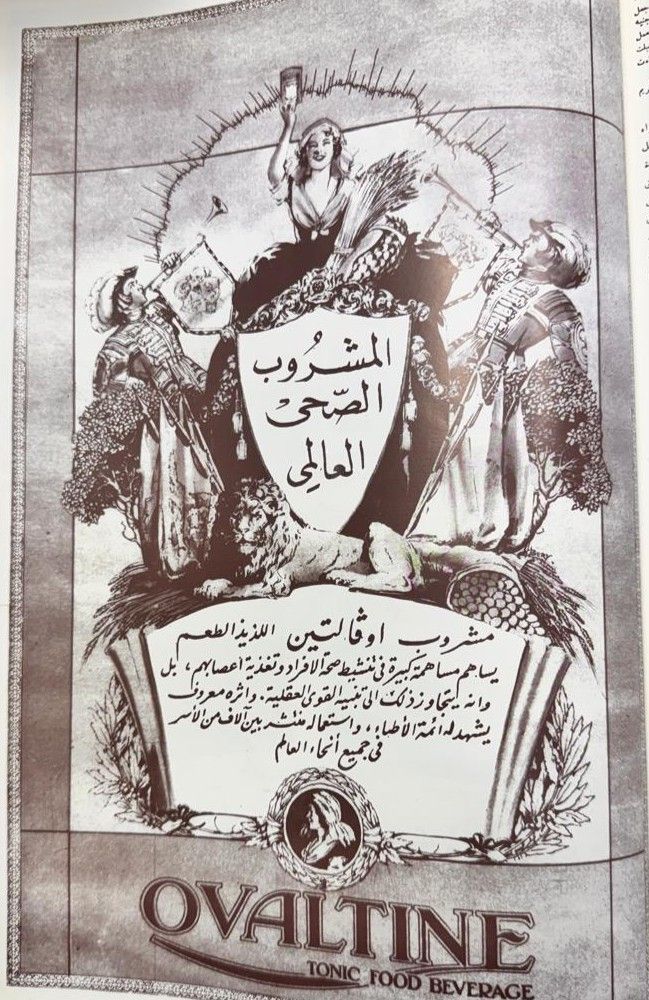 المشرُوب
الصّحى
العالمِى
مشروب اوڤالتين اللذيذ الطعم
يساهم مساهمة كبيرة فى تنشيط صحة الافراد وتغذية اعصابهم، بل
وانه يتجاوز ذلك الى تنبيه القوى العقلية. واثره معروف
يشهد له أئمة الأطباء، واستعماله منتشر بين آلاف من الأسر
فى جميع أنحاء العالم
OVALTINE
TONIC FOOD BEVERAGE